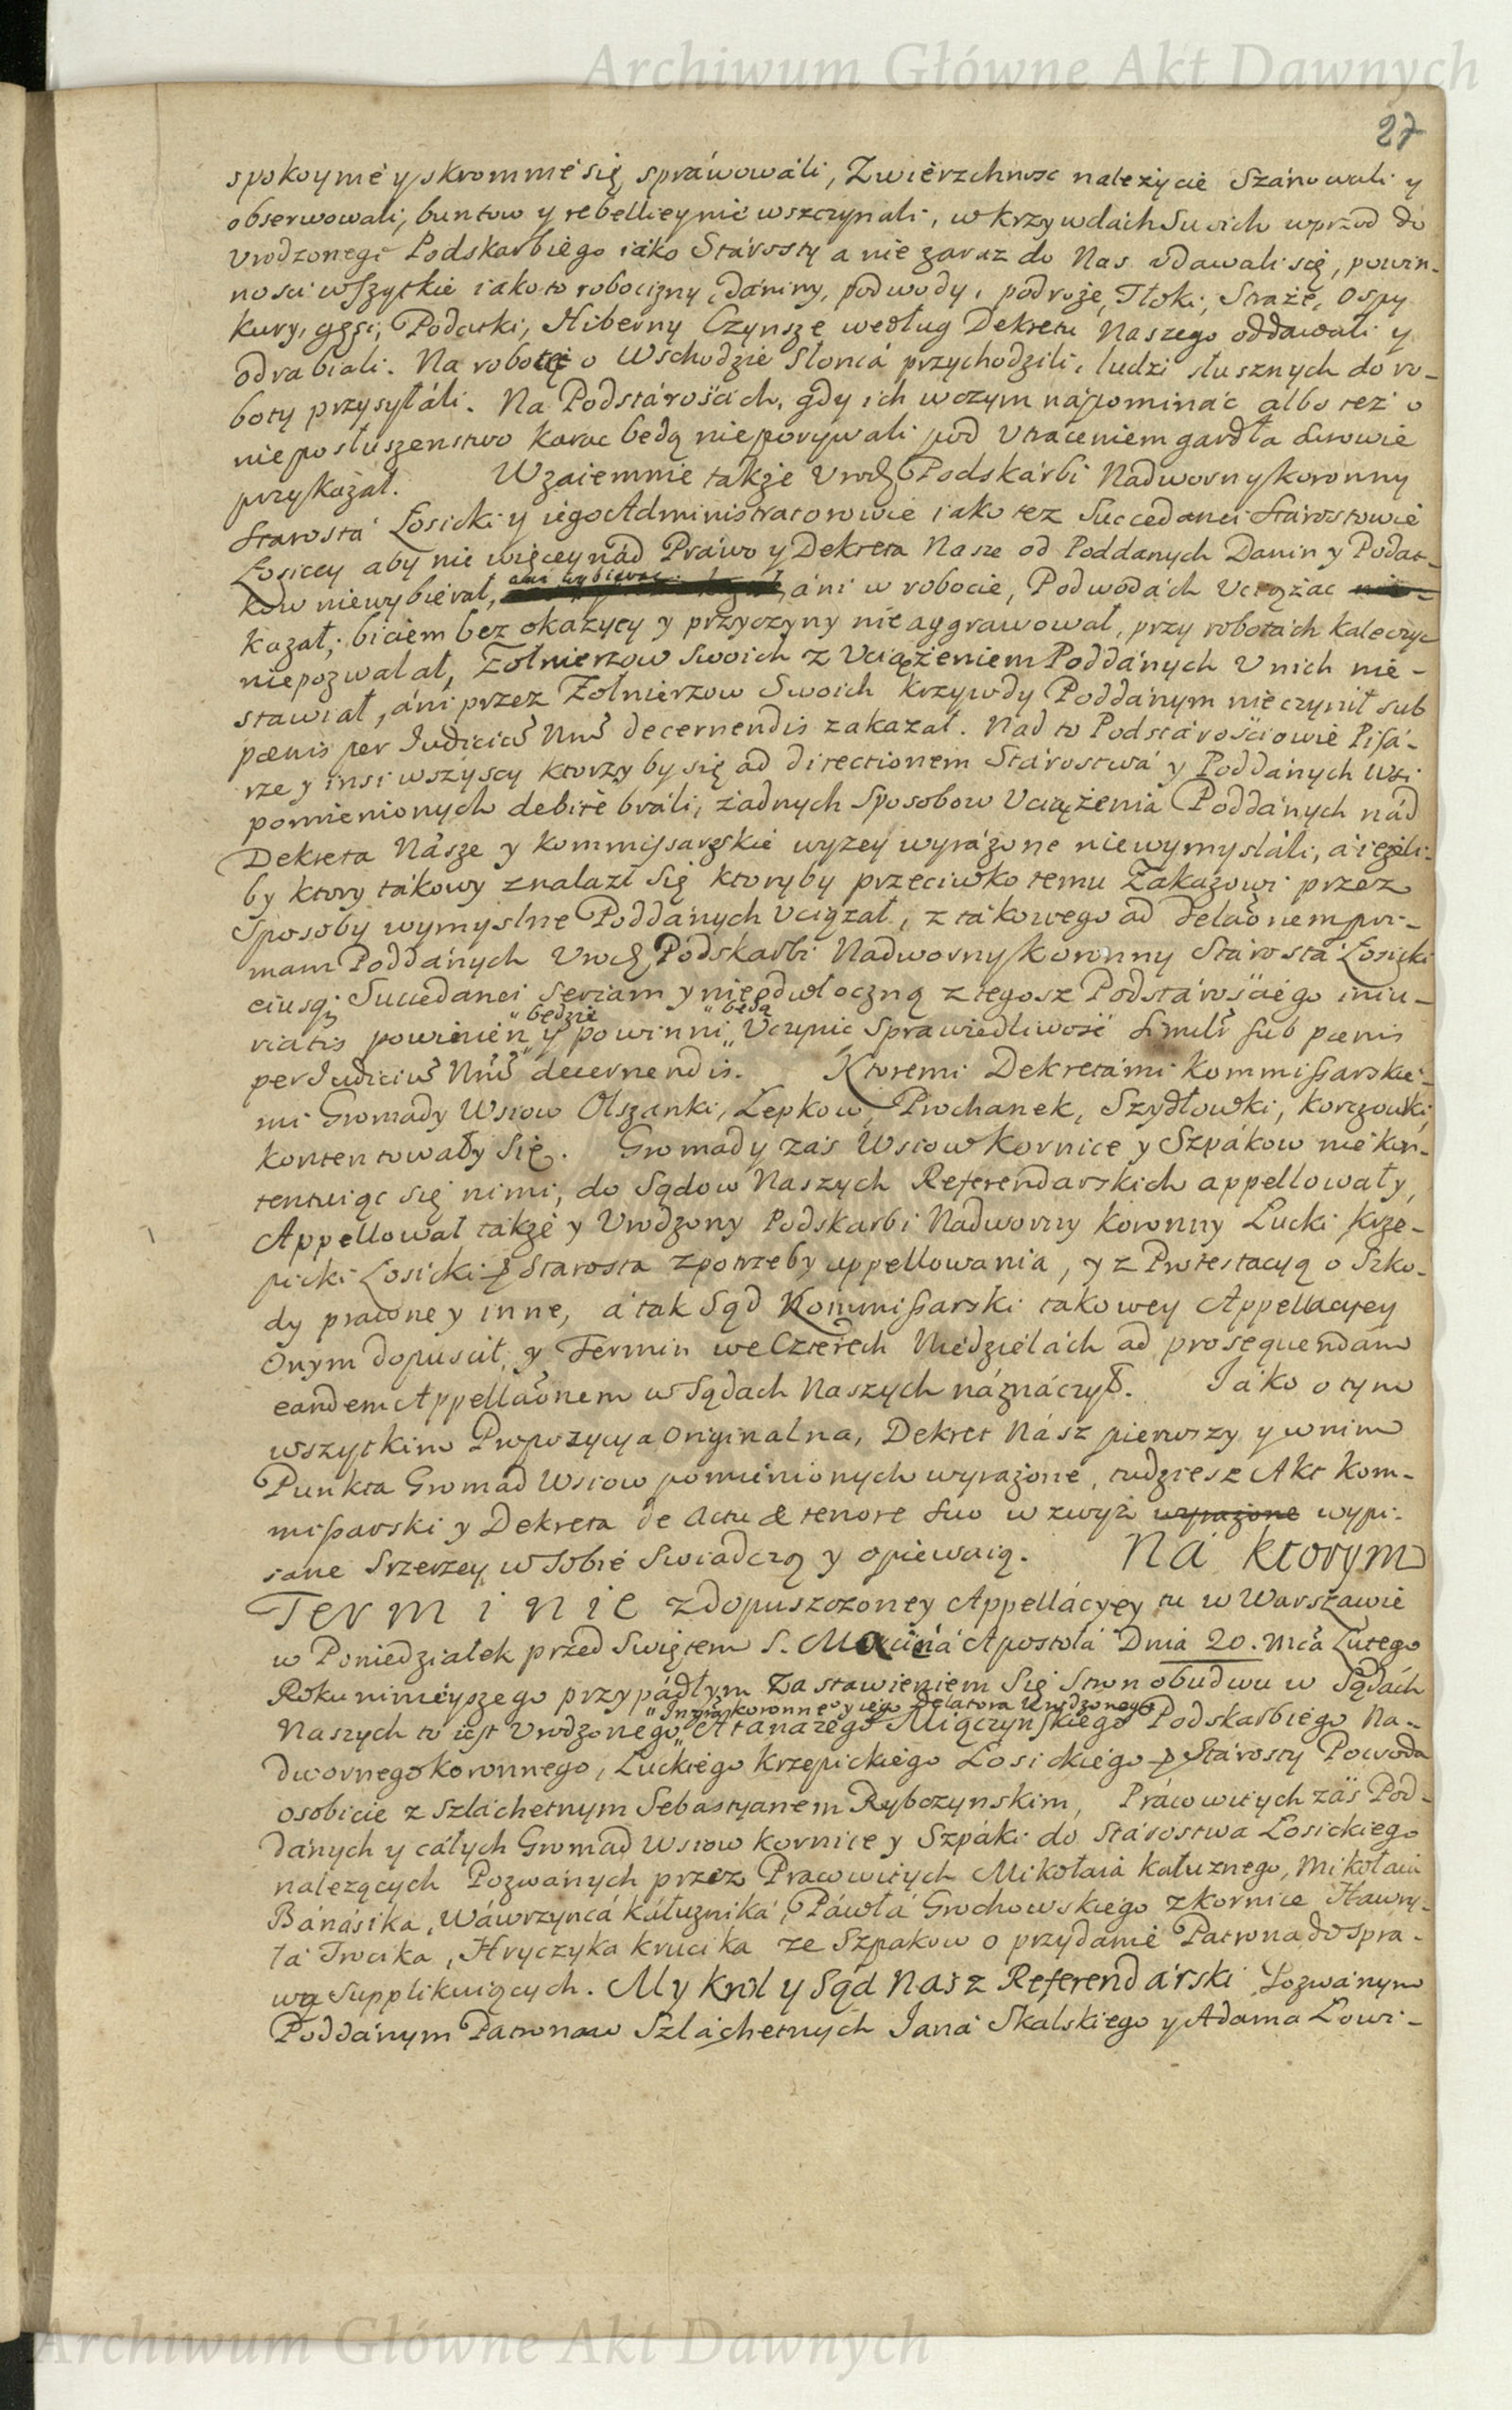 Archiwum Główne Akt Dawnych
27
spokoyniè y skromniè się spráwowáli, Zwierzchność nalezycie Szánowali y
obserwowali, buntow y rebellicy niè wszczynali, w krzywdách Swoich wprzod do
Urodzonego Podskarbiego iáko Stárosty a nie zaraz do Nas udawali się, powin-
nosci wszytkie iako to robocizny, dániny, podwody, podroże, Tłoki, Straże, Ospy
kury, gęsi, Podatki, Hiberny Czynsze według Dekretu Naszego oddawali y
odrabiali. Na robotę o Wschodzie Słoncá przychodzili, ludzi słusznych do ro-
boty przysyłáli. Na Podstárościch, gdy ich w czym nápomináć albo też o
nieposłuszenstwo karac będą nie porywali pod utraceniem gardła surowie
przykazał. Wzaiemnie także Urodz Podskárbi Nadworny koronny
Starostá Łosicki y iego Administratorowie iako tez Succedanei Stárostowie
Łosiccy aby nie więcey nád Práwo y Dekreta Nasze od Poddanych Danin y Podat-
kow niewybierał, ani wybierac áni w robocie, Podwodách Uciążac nie-
kazał, biciem bez okazycy y przyczyny nie aggrawował, przy robotách kaleczyc
niepozwalał, Żołnierzow Swoich z Uciążeniem Poddánych U nich nie-
stawiał, áni przez Żołnierzow Swoich krzywdy Poddánym nieczynił sub
pœnis per Judiciū Nrū decernendis zakazał. Nad to Podstárościowie Pisá-
rze y insi wszyscy ktorzy by się ad directionem Stárostwá y Poddánych Wsi
pomienionych debitè bráli, żadnych Sposobow Uciążenia Poddánych nád
Dekreta Násze y Kommissarskie wyzey wyráżone niewymysláli, a ieżeli-
by ktory tákowy znalazł się ktoryby przeciwko temu Zakazowi przez
Sposoby wymyslne Poddánych Uciązał, z tákowego ad delaōnem pri-
mam Poddánych Urodz Podskarbi Nadworny koronny Stárostá Łosicki
eiusq; Succedanei Seriam y nieodwłoczną z tegosz Podstárościego iniu-
" będzie " będą
riatis powinien " y powinni " Uczynić Sprawiedliwość similr sub pœnis
per Judiciū Nrū decernendis. Ktoremi Dekretámi Kommissarskie-
mi Gromady Wsiow Olszanki, Łepkow, Prochanek, Szydłowki, Korczowki,
kontentowały się. Gromady zaś Wsiow Kornice y Szpákow nie kon-
tentuiąc się nimi, do Sądow Naszych Referendarskich appellowały,
Appellował także y Urodzony Podskarbi Nadworny Koronny Łucki Krze-
picki Łosicki &c Starosta z potrzeby appellowania, y z Protestacyą o Szko-
dy prawne y inne, á tak Sąd Kommissarski takowey Appellacyey
Onym dopuścił y Termin we Czterech Niedzielách ad prosequendam
eandem Appellaōnem w Sądach Naszych náznáczył. Iáko o tym
wszytkim Propozycya Originalna, Dekret Nász pierwszy y w nim
Punkta Gromad Wsiow pomienionych wyrażone, tudziesz Akt Kom-
missarski y Dekreta de Actu & tenore suo wzwyż wyrażone wypi-
sane Szerzey w sobie Swiadczą y opiewaią. Ná ktorym
Terminie z dopuszczoney Appellácyey tu w Warszawie
w Poniedziałek przed Swiętem S. Macieiá Apostołá Dniá 20. Mcā Lutego
Roku nineyszego przypádłym Za stawieniem się Stron obudwu w Sądách
" koronnego y iego Delatora Urodzonego
Naszych to iest Urodzonego " Atanazego Miączynskiego Podskarbiego Na-
dwornego koronnego, Łuckiego Krzepickiego Łosickiego &c Stárosty Powoda
osobiscie z Szláchetnym Sebastyanem Rybczynskim, Prácowitych zás Pod-
dánych y cáłych Gromad Wsiow Kornice y Szpáki do Stárostwa Łosickiego
nalezących Pozwánych przez Pracowitych Mikołaiá Kałuznego, Mikołaia
Bánásika, Wáwrzyncá Káłuznika, Páwłá Grochowskiego z Kornice Hawry-
łá Trocika, Hryczyka Krucika ze Szpakow o przydanie Patrona do Spra-
wy Supplikuiących. My Krol y Sąd Nász Referendárski Pozwánym
Poddánym Patronow Szláchetnych Janá Skalskiego y Adama Łowi-
Archiwum Główne Akt Dawnych